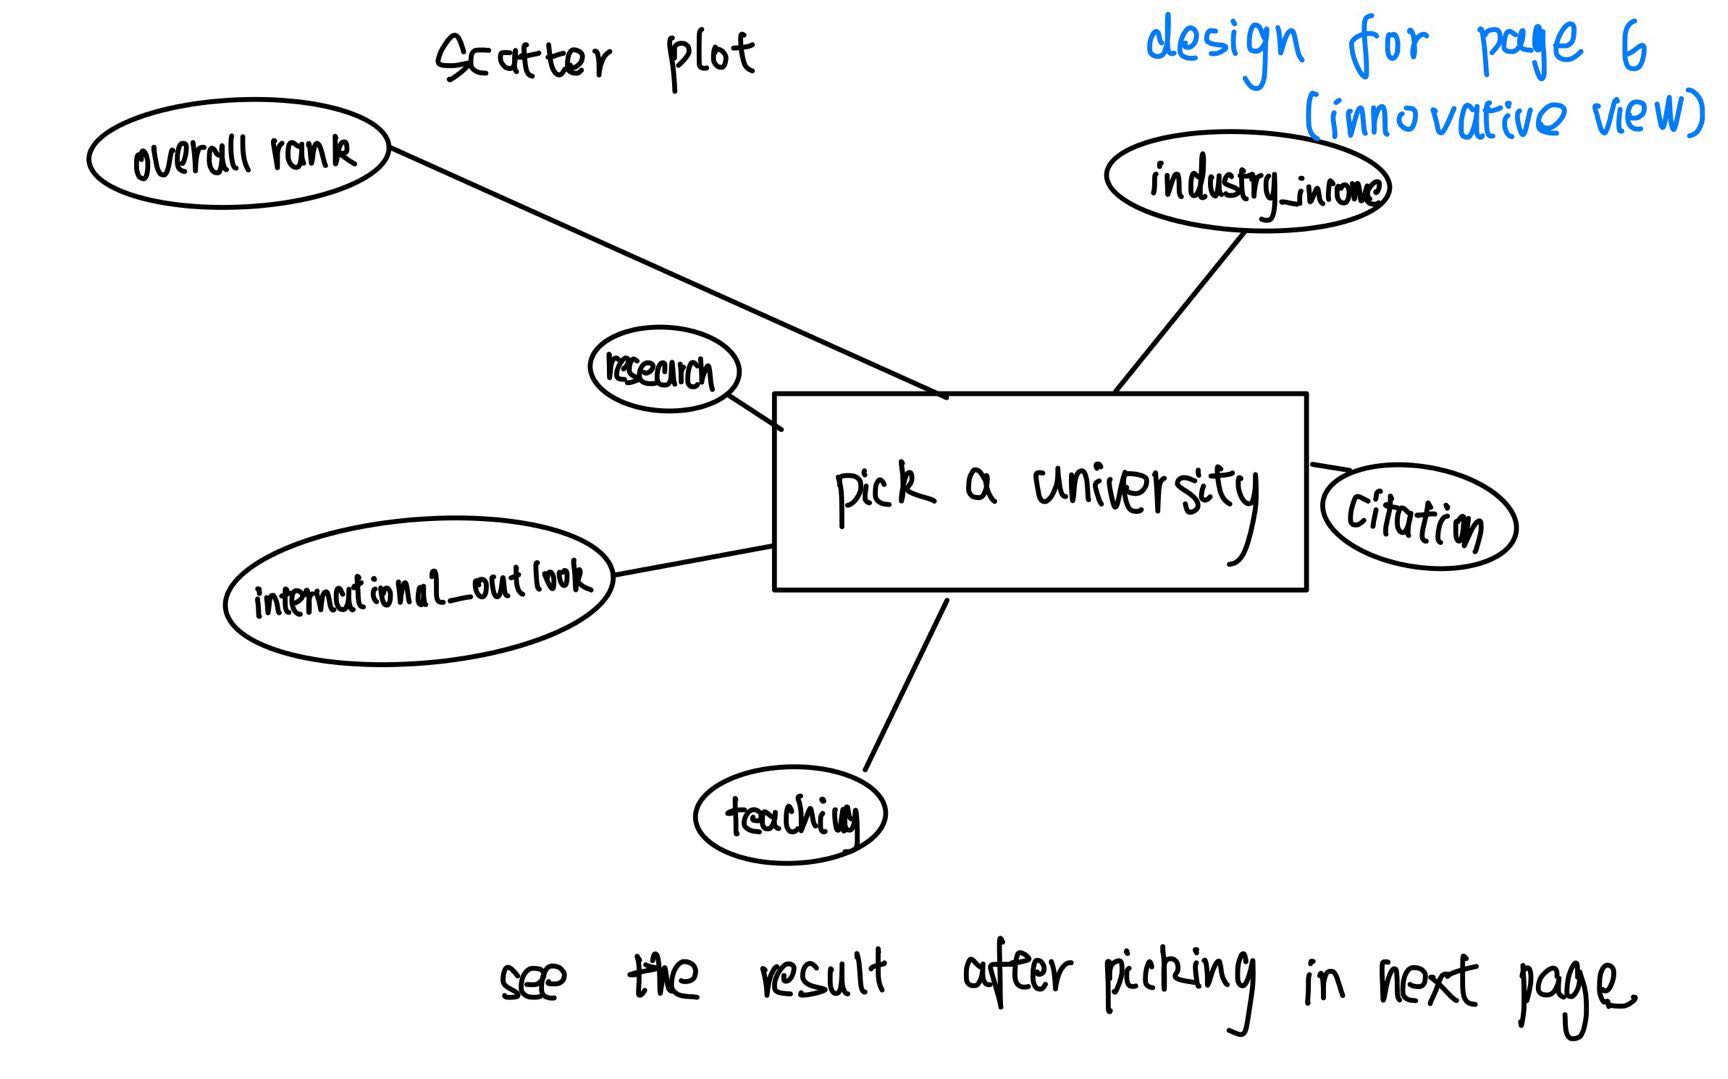 Scatter plot
design for page 6
(innovative view)
overall rank
industry_income
research
pick a university
citation
international_outlook
teaching
see the result after picking in next page